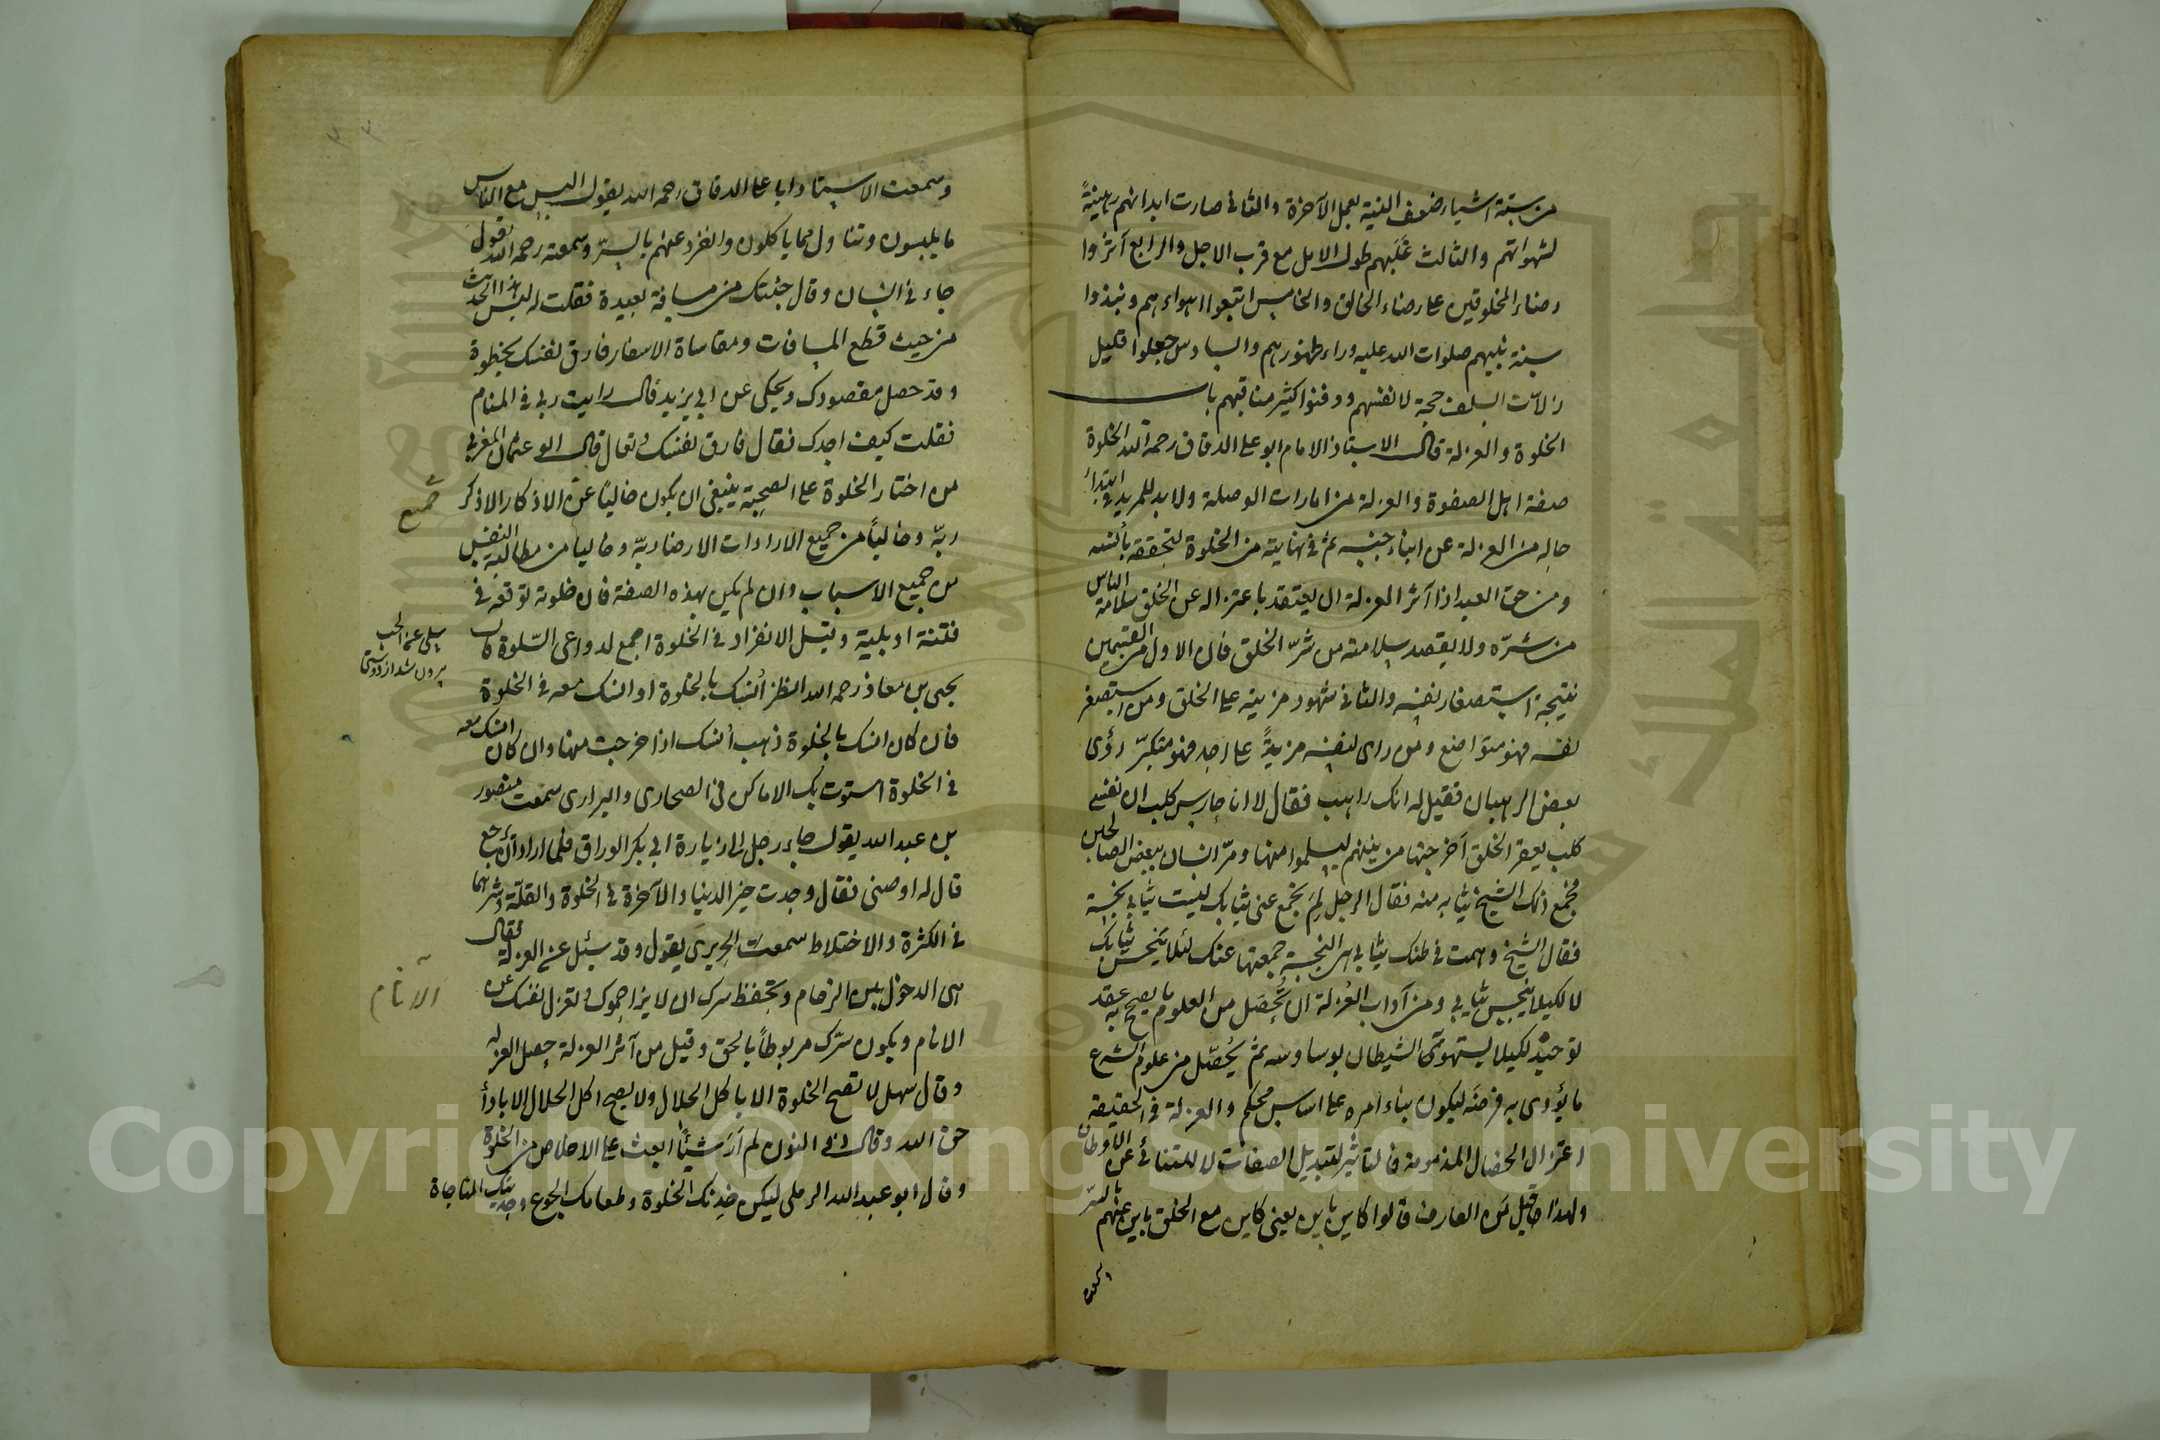 من ستة اشياء ضعف النية بعمل الآخرة والثانى صارت ابدانهم رهينةً
لشهواتهم والثالث غَلَبهم طول الامل مع قرب الاجل والرابع آثروا
رضاء المخلوقين على رضاء الخالق والخامس اتبعوا اهواءهم ونبذوا
سنة نبيهم صلوات الله عليه وراء ظهورهم والسادس جعلوا قليل
زلات السلف حجة لانفسهم ودفنوا كثير مناقبهم باب
الخلوة والعزلة قال الاستاذ الامام ابو على الدقاق رحمه الله الخلوة
صفة اهل الصفوة والعزلة من امارات الوصلة ولا بد للمريد فى ابتداء
حاله من العزلة عن ابناء جنسه ثم فى نهايته من الخلوة لتحققه بأنسه
ومن حق العبد اذا آثر العزلة ان يعتقد باعتزاله عن الخلق سلامة الناس
من شرّه ولا يقصد سلامته من شرّ الخلق فان الاول من القسمين
نتيجة استصغار نفسه والثانى شهود مزيته على الخلق ومن استصغر
نفسه فهو متواضع ومن راى لنفسه مزيةً على احد فهو متكبّر رؤى
بعض الرهبان فقيل له انك راهب فقال لا انا حارس كلب ان نفسى
كلب يعقر الخلق اخرجتها من بينهم ليسلموا منها ومرّ انسان ببعض الصالحين
فجمع ذلك الشيخ ثيابه منه فقال الرجل لِمَ تجمع عنى ثيابك ليست ثيابى نجسة
فقال الشيخ وهمت فى ظنك ثيابى هى النجسة جمعتها عنك لئلا تنجس ثيابك
لا لكيلا ينجس ثيابى ومن آداب العُزلة ان يُحصّل من العلوم ما يصح به عقد
توحيده لكيلا يستهويه الشيطان بوساوسه ثم يُحصّل من علوم الشرع
ما يؤدى به فرضَه ليكون بناء امره على اساس محكم والعزلة فى الحقيقة
اعتزال الخصال المذمومة فالتاثير لتبديل الصفات لا للتنائى عن الاوطان
ولهذا قيل مَن العارف قالوا كاين باين يعنى كاين مع الخلق باين عنهم بالسّر
وسمعت
وسمعت الاستاذ ابا على الدقاق رحمه الله يقول البس مع الناس
ما يلبسون وتناول مما ياكلون وانفرد عنهم بالسرّ وسمعته رحمه الله يقول
جاءنى انسان وقال جئتك من مسافة بعيدة فقلت له ليس هذا الحديث
من حيث قطع المسافات ومقاساة الاسفار فارق نفسك بخطوة
وقد حصل مقصودك ويحكى عن ابى يزيد قال رايت ربى فى المنام
فقلت كيف اجدك فقال فارق نفسك وتعال قال ابو عثمان المغربى
من اختار الخلوة على الصحبة ينبغى ان يكون خاليًا عن الاذكار الا ذكر
جميع
ربّه وخاليًا من جميع الارادات الا رضا ربّه وخاليا من مطالبة النفس
من جميع الاسباب وان لم يكن بهذه الصفة فان خلوته توقعه فى
فتنة او بلية وقيل الانفراد فى الخلوة اجمع لدواعى السّلوة قال
سلى عنه الحب
بيرون شد از دوستى
يحيى بن معاذ رحمه الله انظر أنسك بالخلوة او انسك معه فى الخلوة
فان كان انسك بالخلوة ذهب أنسك اذا خرجت منها وان كان انسك معه
فى الخلوة استوت بك الاماكن فى الصحارى والبرارى سمعت منصور
بن عبد الله يقول جاء رجل الى زيارة ابى بكر الوراق فلما اراد أن يرجع
قال له اوصنى فقال وجدت خير الدنيا والآخرة فى الخلوة والقلّة وشرهما
فى الكثرة والاختلاط سمعت الجريرى يقول وقد سئل عن العزلة فقال
هى الدخول بين الزحام وتحفظ سرك ان لا يزاحموك وتعزل نفسك عن
الآثام
الاثام ويكون سرّك مربوطًا بالحق وقيل من آثر العزلة حصل العز له
وقال سهل لا تصح الخلوة الا باكل الحلال ولا يصح اكل الحلال الا باداء
حق الله وقال ذو النون لم اَرَ شيئًا ابعث على الاخلاص من الخلوة
وقال ابو عبد الله الرملى ليكن خدنك الخلوة وطعامك الجوع وحديثك المناجاة
Copyright © King Saud University